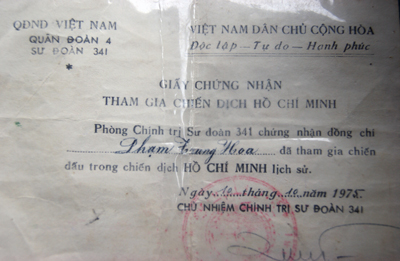 QĐND VIỆT NAM
QUÂN ĐOÀN 4
SƯ ĐOÀN 341
*
VIỆT NAM DÂN CHỦ CỘNG HÒA
Độc lập – Tự do – Hạnh phúc
GIẤY CHỨNG NHẬN
THAM GIA CHIẾN DỊCH HỒ CHÍ MINH
Phòng Chính trị Sư đoàn 341 chứng nhận đồng chí
Phạm Trung Hoa đã tham gia chiến
đấu trong chiến dịch HỒ CHÍ MINH lịch sử.
Ngày 10 tháng 10 năm 1975
CHỦ NHIỆM CHÍNH TRỊ SƯ ĐOÀN 341